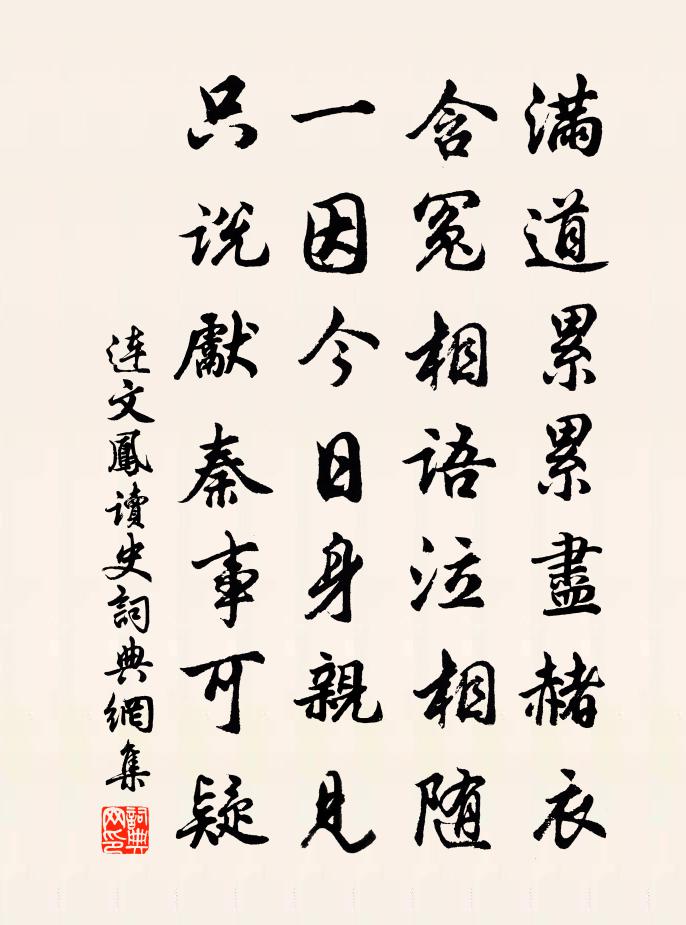 滿道累累盡赭衣
含冤相語泣相随
一因今日身親見
只說獻秦事可疑
連文鳳讀史詞典網集
詞典網印